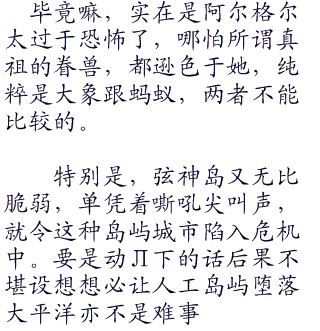 毕竟嘛，实在是阿尔格尔
太过于恐怖了，哪怕所谓真
祖的眷兽，都逊色于她，纯
粹是大象跟蚂蚁，两者不能
比较的。
特别是，弦神岛又无比
脆弱，单凭着嘶吼尖叫声，
就令这种岛屿城市陷入危机
中。要是动Л下的话后果不
堪设想想必让人工岛屿堕落
大平洋亦不是难事